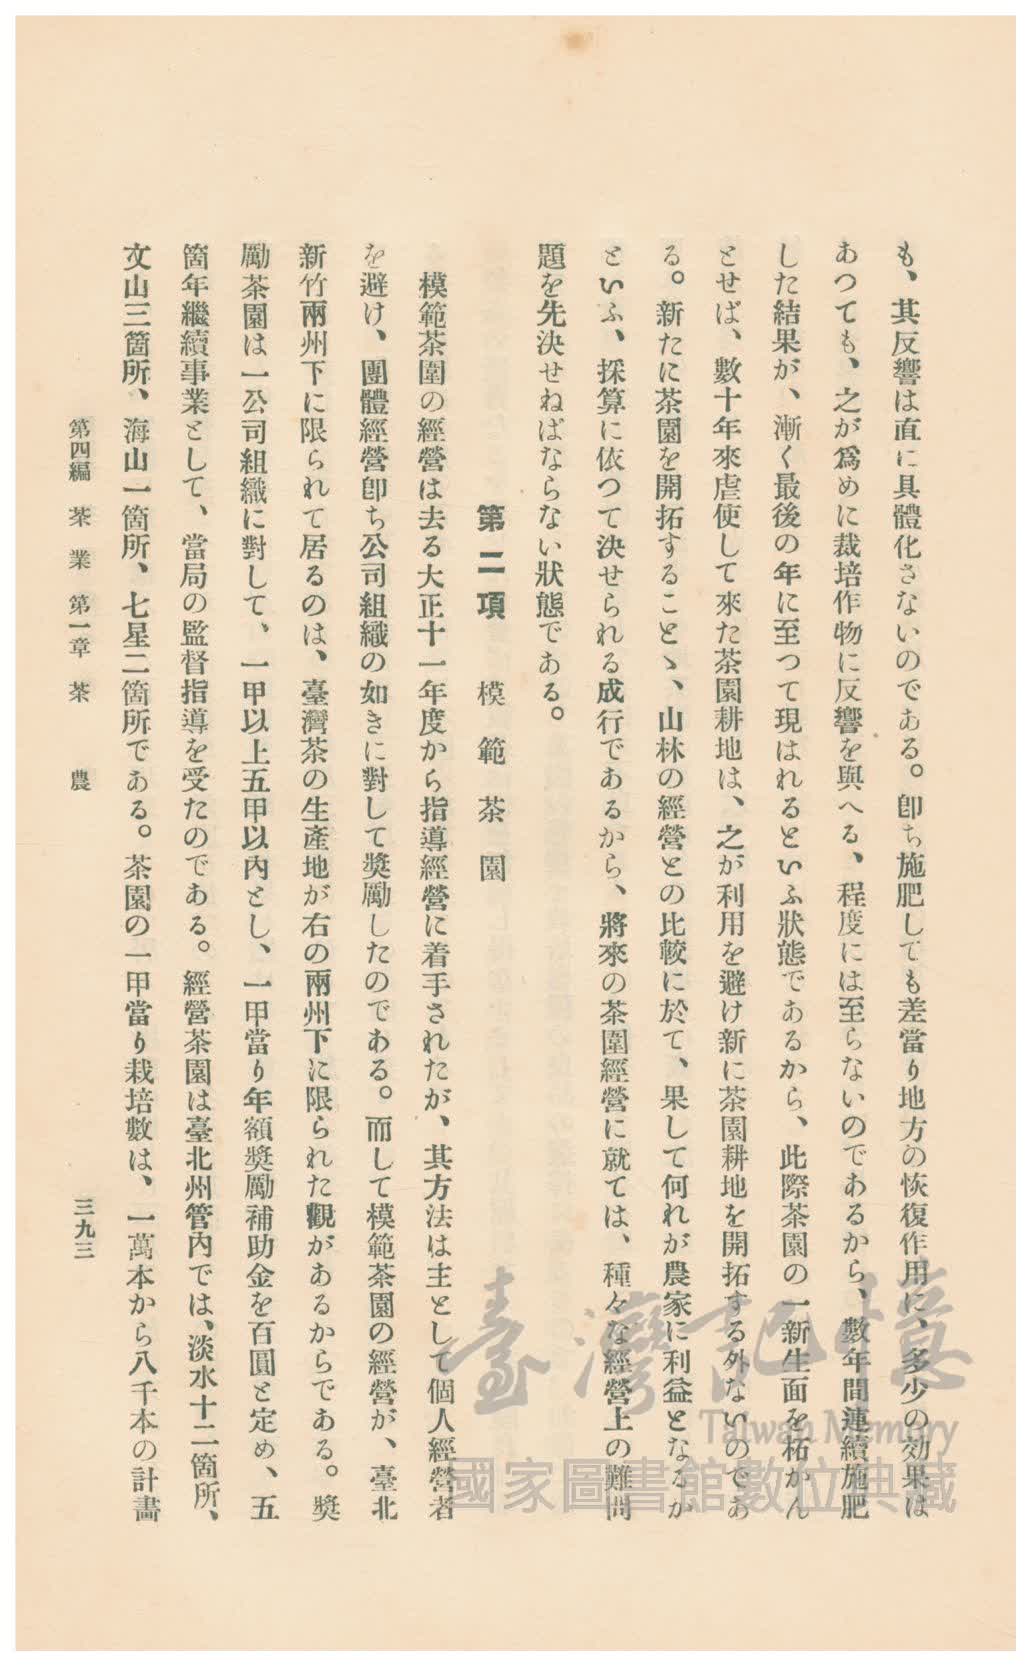 も、其反響は直に具體化さないのである。卽ち施肥しても差當り地方の恢復作用に、多少の効果は
あつても、之が爲めに栽培作物に反響を與へる、程度には至らないのであるから、數年間連續施肥
した結果が、漸く最後の年に至つて現はれるといふ狀態であるから、此際茶園の一新生面を柘かん
とせば、數十年來虐使して來た茶園耕地は、之が利用を避け新に茶園耕地を開拓する外ないのであ
る。新たに茶園を開拓することゝ、山林の經營との比較に於て、果して何れが農家に利益となるか
といふ、採算に依つて決せられる成行であるから、將來の茶園經營に就ては、種々な經營上の難問
題を先決せねばならない狀態である。
第二項 模範茶園
模範茶園の經營は去る大正十一年度から指導經營に着手されたが、其方法は主として個人經營者
を避け、團體經營卽ち公司組織の如きに對して奬勵したのである。而して模範茶園の經營が、臺北
新竹兩州下に限られて居るのは、臺灣茶の生產地が右の兩州下に限られた觀があるからである。奬
勵茶園は一公司組織に對して、一甲以上五甲以內とし、一甲當り年額奬勵補助金を百圓と定め、五
箇年繼續事業として、當局の監督指導を受たのである。經營茶園は臺北州管內では、淡水十二箇所、
文山三箇所、海山一箇所、七星二箇所である。茶園の一甲當り栽培數は、一萬本から八千本の計畵
第四編 茶業 第一章 茶農
三九三
臺灣記憶
Taiwan Memory
國家圖書館數位典藏